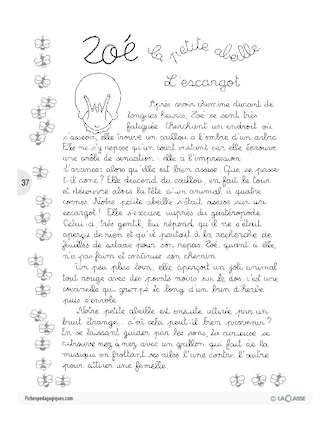 Zoé la petite abeille
L'escargot
Après avoir cheminé durant de
longues heures, Zoé se sent très
fatiguée. Cherchant un endroit où
s'asseoir, elle trouve un caillou à l'ombre d'un arbre.
Elle ne s'y repose qu'un court instant car elle éprouve
une drôle de sensation : elle a l'impression
d'avancer alors qu'elle est bien assise. Que se passe-
t-il donc ? Elle descend du caillou, en fait le tour
et découvre alors la tête d'un animal à quatre
cornes. Notre petite abeille s'était assise sur un
escargot ! Elle s'excuse auprès du gastéropode.
Celui-ci, très gentil, lui répond qu'il ne s'était
aperçu de rien et qu'il partait à la recherche de
feuilles de salade pour son repas. Zoé, quant à elle,
n'a pas faim et continue son chemin.
Un peu plus loin, elle aperçoit un joli animal
tout rouge avec des points noirs sur le dos : c'est une
coccinelle qui grimpe le long d'un brin d'herbe
puis s'envole.
Notre petite abeille est ensuite attirée par un
bruit étrange... d'où cela peut-il bien provenir ?
En se laissant guider par les sons, la curieuse se
retrouve nez à nez avec un grillon qui fait de la
musique en frottant ses ailes l'une contre l'autre
pour attirer une femelle.
37
Fichespedagogiques.com
© LA CLASSE